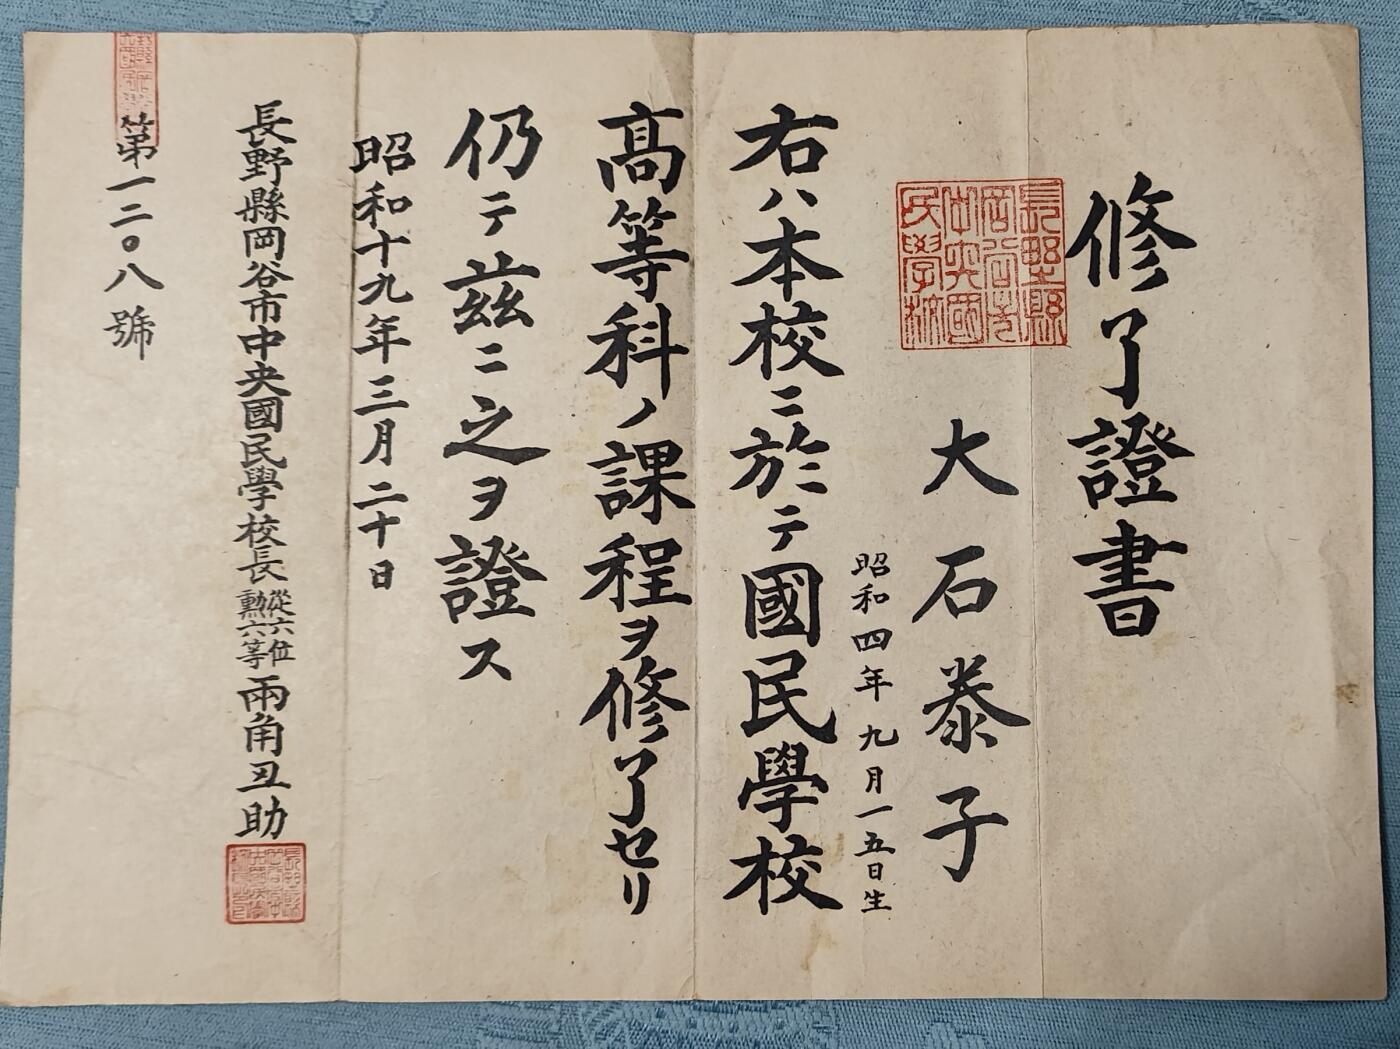 修了證書
長野縣
岡谷市
中央國
民學校
大石泰子
昭和四年九月一五日生
右ハ本校ニ於テ國民學校
高等科ノ課程ヲ修了セリ
仍テ茲ニ之ヲ證ス
昭和十九年三月二十日
長野縣岡谷市中央國民學校長 從六位勲六等 兩角丑助
第一二〇八號